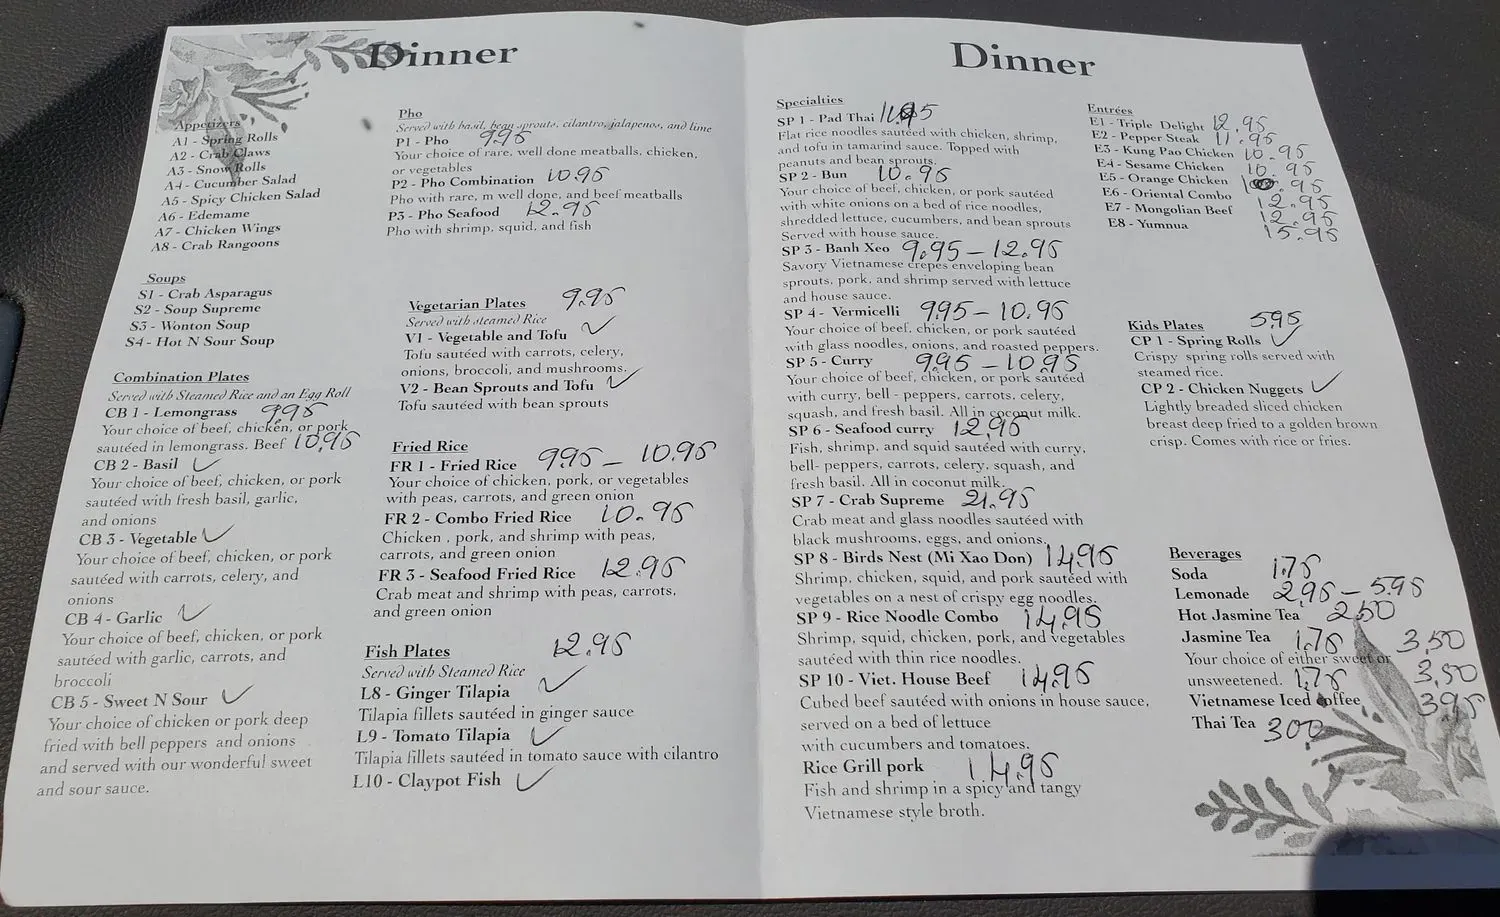 Dinner
Appetizers
A1 - Spring Rolls
A2 - Crab Claws
A3 - Snow Rolls
A4 - Cucumber Salad
A5 - Spicy Chicken Salad
A6 - Edemame
A7 - Chicken Wings
A8 - Crab Rangoons
Soups
S1 - Crab Asparagus
S2 - Soup Supreme
S3 - Wonton Soup
S4 - Hot N Sour Soup
Combination Plates
Served with Steamed Rice and an Egg Roll
CB 1 - Lemongrass 9.95
Your choice of beef, chicken, or pork
sautéed in lemongrass. Beef 10.95
CB 2 - Basil ✓
Your choice of beef, chicken, or pork
sautéed with fresh basil, garlic,
and onions
CB 3 - Vegetable ✓
Your choice of beef, chicken, or pork
sautéed with carrots, celery, and
onions
CB 4 - Garlic ✓
Your choice of beef, chicken, or pork
sautéed with garlic, carrots, and
broccoli
CB 5 - Sweet N Sour ✓
Your choice of chicken or pork deep
fried with bell peppers and onions
and served with our wonderful sweet
and sour sauce.
Pho
Served with basil, bean sprouts, cilantro, jalapenos, and lime
P1 - Pho 9.95
Your choice of rare, well done meatballs, chicken,
or vegetables
P2 - Pho Combination 10.95
Pho with rare, m well done, and beef meatballs
P3 - Pho Seafood 12.95
Pho with shrimp, squid, and fish
Vegetarian Plates 9.95
Served with steamed Rice
V1 - Vegetable and Tofu ✓
Tofu sautéed with carrots, celery,
onions, broccoli, and mushrooms.
V2 - Bean Sprouts and Tofu ✓
Tofu sautéed with bean sprouts
Fried Rice
FR 1 - Fried Rice 9.95 - 10.95
Your choice of chicken, pork, or vegetables
with peas, carrots, and green onion
FR 2 - Combo Fried Rice 10.95
Chicken , pork, and shrimp with peas,
carrots, and green onion
FR 3 - Seafood Fried Rice 12.95
Crab meat and shrimp with peas, carrots,
and green onion
Fish Plates 12.95
Served with Steamed Rice
L8 - Ginger Tilapia ✓
Tilapia fillets sautéed in ginger sauce
L9 - Tomato Tilapia ✓
Tilapia fillets sautéed in tomato sauce with cilantro
L10 - Claypot Fish ✓
Dinner
Specialties
SP 1 - Pad Thai
Flat rice noodles sautéed with chicken, shrimp,
and tofu in tamarind sauce. Topped with
peanuts and bean sprouts.
SP 2 - Bun 10.95
Your choice of beef, chicken, or pork sautéed
with white onions on a bed of rice noodles,
shredded lettuce, cucumbers, and bean sprouts
Served with house sauce.
SP 3 - Banh Xeo 9.95 - 12.95
Savory Vietnamese crepes enveloping bean
sprouts, pork, and shrimp served with lettuce
and house sauce.
SP 4 - Vermicelli 9.95 - 10.95
Your choice of beef, chicken, or pork sautéed
with glass noodles, onions, and roasted peppers.
SP 5 - Curry 9.95 - 10.95
Your choice of beef, chicken, or pork sautéed
with curry, bell - peppers, carrots, celery,
squash, and fresh basil. All in coconut milk.
SP 6 - Seafood curry 12.95
Fish, shrimp, and squid sautéed with curry,
bell- peppers, carrots, celery, squash, and
fresh basil. All in coconut milk.
SP 7 - Crab Supreme 21.95
Crab meat and glass noodles sautéed with
black mushrooms, eggs, and onions.
SP 8 - Birds Nest (Mi Xao Don) 14.95
Shrimp, chicken, squid, and pork sautéed with
vegetables on a nest of crispy egg noodles.
SP 9 - Rice Noodle Combo 14.95
Shrimp, squid, chicken, pork, and vegetables
sautéed with thin rice noodles.
SP 10 - Viet. House Beef 14.95
Cubed beef sautéed with onions in house sauce,
served on a bed of lettuce
with cucumbers and tomatoes.
Rice Grill pork 14.95
Fish and shrimp in a spicy and tangy
Vietnamese style broth.
Entrées
E1 - Triple Delight 12.95
E2 - Pepper Steak 11.95
E3 - Kung Pao Chicken 10.95
E4 - Sesame Chicken 10.95
E5 - Orange Chicken
E6 - Oriental Combo 12.95
E7 - Mongolian Beef 12.95
E8 - Yumnua 15.95
Kids Plates 5.95
CP 1 - Spring Rolls ✓
Crispy spring rolls served with
steamed rice.
CP 2 - Chicken Nuggets ✓
Lightly breaded sliced chicken
breast deep fried to a golden brown
crisp. Comes with rice or fries.
Beverages
Soda 1.75
Lemonade 2.95 - 5.95
Hot Jasmine Tea 2.50
Jasmine Tea 1.75 3.50
Your choice of either sweet or
unsweetened. 1.75 3.50
Vietnamese Iced Coffee 3.95
Thai Tea 3.00